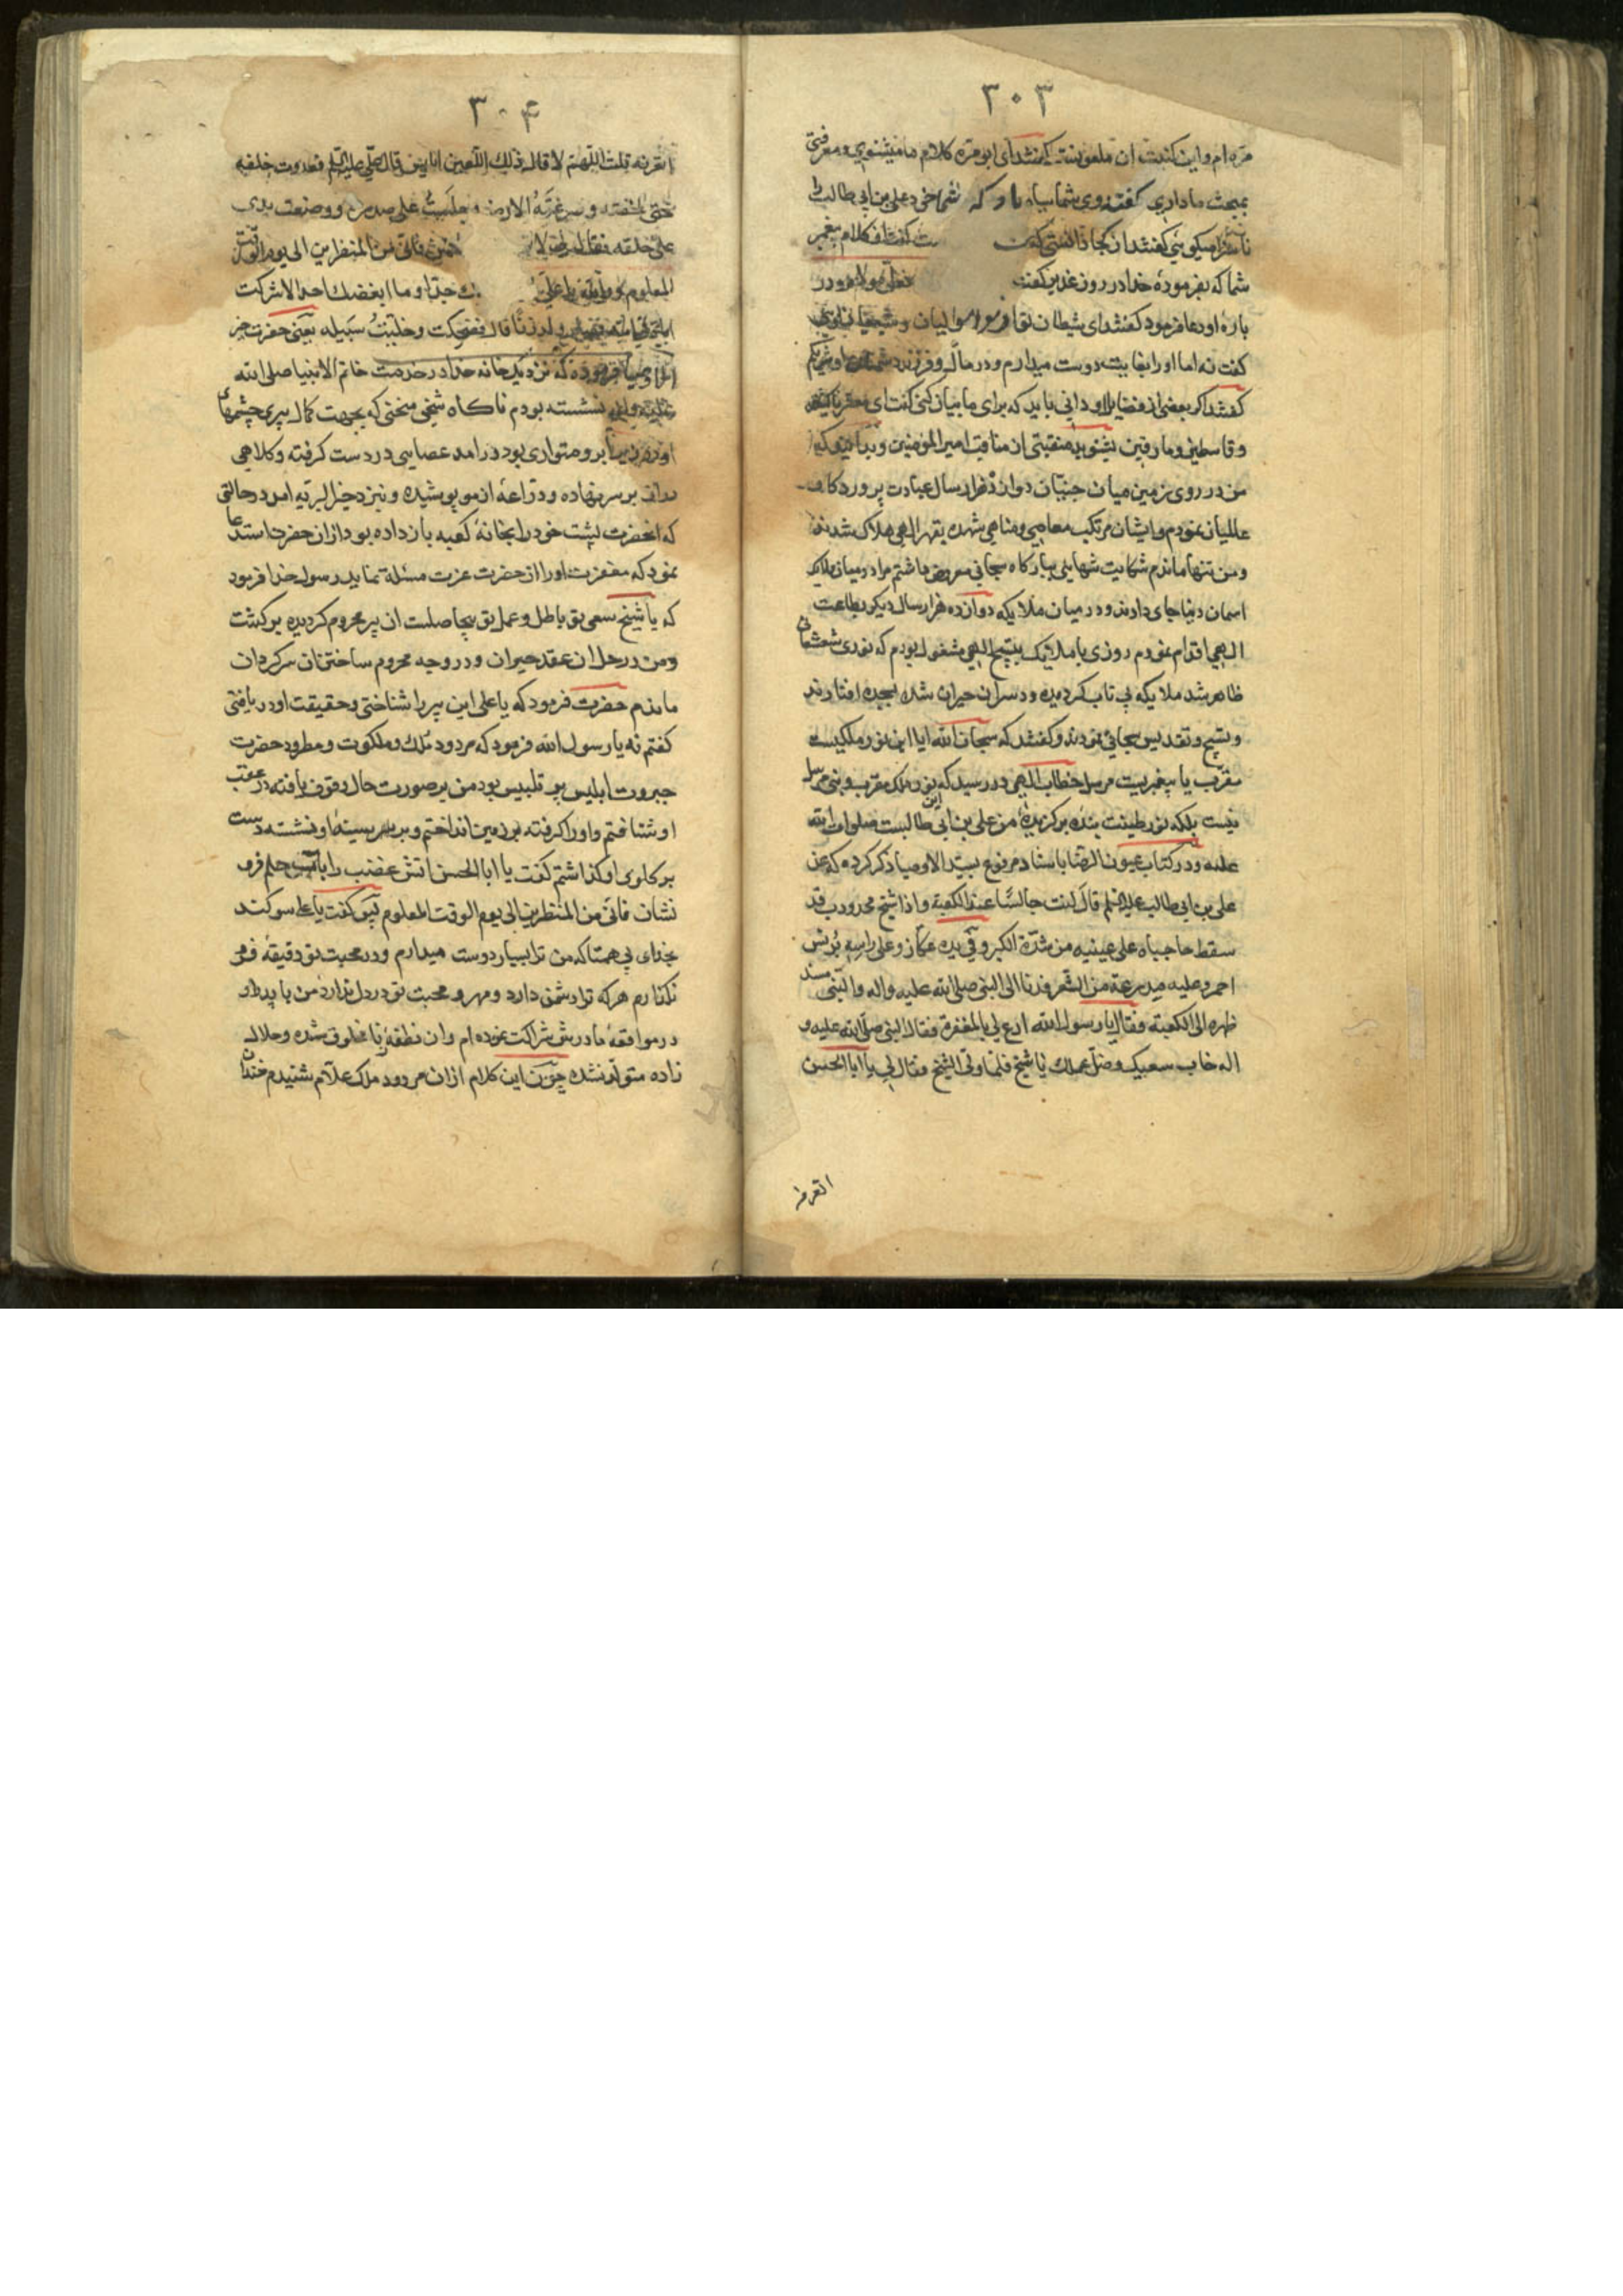 ۳۰۳
مره ام و این کنیت آن ملعونست گفتند ای ابو مره کلام ما میشنوی و معرفتی
بمبحث ما داری گفت روی شما سیاه باد که شما خود علی بن ابی طالب را
ناسزا میگوئی گفتند از کجا دانستی که گفت از کلام پیغمبر
شما که بفرموده خدا در روز غدیر گفت فعلی مولاه و در
باره او دعا فرمود گفتند ای شیطان تو از موالیان و شیعیان اوئی
گفت نه اما او را بغایت دوست میدارم و در مال و فرزند دشمنان او شریکم
گفتند اگر بعضی از فضایل او دانی باید که برای ما بیان کنی گفت ای معشر ناکثین
و قاسطین و مارقین بشنوید منقبتی از مناقب امیر المؤمنین و بدانید که
من در روی زمین میان جنیان دوازده هزار سال عبادت پروردکار
عالمیان نمودم و ایشان مرتکب معاصی و مناهی شده بقهر الهی هلاک شدند
و من تنها ماندم شکایت تنهایی ببارگاه سبحانی معروض داشتم مرا در میان ملایک
اسمان دنیا جای دادند و در میان ملایکه دوازده هزار سال دیگر بطاعت
الهی اقدام نمودم روزی با ملائیک بتسبیح الهی مشغول بودم که نوری شعشعانی
ظاهر شد ملایکه بی تاب گردیده و دسران حیران شده بسجده افتادند
و تسبیح و تقدیس سبحانی نمودند و گفتند که سبحان الله ایا این نور ملکیست
مقرب یا پیغمبریست مرسل خطاب الهی در رسید که این نور ملک مقرب و نبی مرسل
نیست بلکه نور طینت بنده برگزیدهٔ من علی بن ابی طالبست صلوات الله
علیه و در کتاب عیون الرضا باسناد مرفوع بسید الاوصیا ذکر کرده که عن
علی بن ابی طالب علیه السلم قال کنت جالسًا عند الکعبة و اذا شیخ محدودب قد
سقط حاجباه علی عینیه من شدّة الکبر و فی یده عکاز و علی راسه برنس
احمر و علیه مدرعة من الشعر فدنا الی النبی صلی الله علیه واله والنبی مسند
ظهره الی الکعبة فقال یا رسول الله ادع لی بالمغفرة فقال النبی صلی الله علیه و
اله خاب سعیک و ضلّ عملک یا شیخ فلمّا ولّی الشیخ فقال لی یا ابا الحسن
اتعرفه
۳۰۴
اتعرفه قلت اللهم لا قال ذلك اللعین ابلیس قال علی علیه السلم فعدوت خلفه
حتی لحقته و صرعته الی الارض و جلست علی صدره و وضعت یدی
علی حلقه فقال لی لا الحسن فانّی من المنظرین الی یوم الوقت
المعلوم و والله یا علی جدّا و ما ابغضك احد الا شرکت
اباه فی امه ولد زنا قال فضحکت و خلّیت سبیله یعنی حضرت
فرموده که نزدیک خانه خدا در خدمت خاتم الانبیا صلی الله
علیه واله نشسته بودم ناکاه شیخی منحنی که بجهت کمال پیری چشمهای
او در زیر ابرو متواری بود در امد عصایی در دست کرفته و کلاهی
بر سر نهاده و دراعه از مو پوشیده و نزد خیر البریه امد در حالتی
که انحضرت پشت خود را بخانهٔ کعبه باز داده بود از ان حضرت استدعا
نمود که مغفرت او را از حضرت عزت مسئلة نماید رسول خدا فرمود
که یا شیخ سعی تو باطل و عمل تو بیحاصلست ان پیر محروم کردیده برکشت
و من در حل ان عقد حیران و در وجه محروم ساختن ان سرکردان
ماندم حضرت فرمود که یا علی این پیر را شناختی و حقیقت او دریافتی
کفتم نه یا رسول الله فرمود که مردود ملك و ملکوت و مطرود حضرت
جبروت ابلیس پر تلبیس بود من بر صورت حال وقوف یافته در عقب
او شتافتم و او را کرفته بر زمین انداختم و بر سر سینهٔ او نشسته دست
بر کلوی او کذاشتم کفت یا ابا الحسن اتش غضب را باب حلم فرو
نشان فانی من المنظرین الی یوم الوقت المعلوم پس کفت یا علی سوکند
بخدای بی همتا که من ترا بسیار دوست میدارم و در محبت تو دقیقهٔ فرو
نکذارم هر که ترا دشمن دارد و مهر و محبت تو در دل ندارد من با پدر او
در مواقعهٔ مادرش شراکت نموده ام و ان نطفه با مخلوق شده و حلال
زاده متولد نشده چون این کلام از ان مردود ملک علّام شنیدم خندان